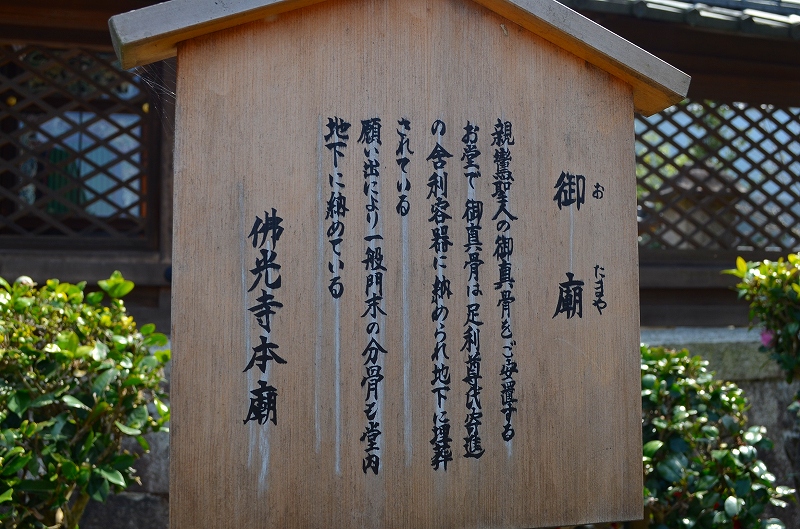 御廟
おたまや
親鸞聖人の御真骨をご安置する
お堂で御真骨は足利尊氏寄進
の舎利容器に納められ地下に埋葬
されている
願い出により一般門末の分骨も堂内
地下に納めている
佛光寺本廟